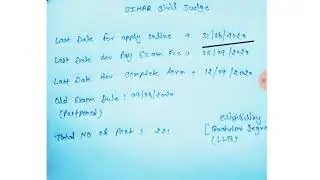 BIHAR Civil Judge
Last Date for apply online → 31/08/2020
Last Date for Pay Exam Fee →
Last Date for Complete form → 12/09/2020
Old Exam Date : 09/08/2020
(Postponed)
Total No of Post : 221
Eligibility
[Bachelor Degree
(LLB)